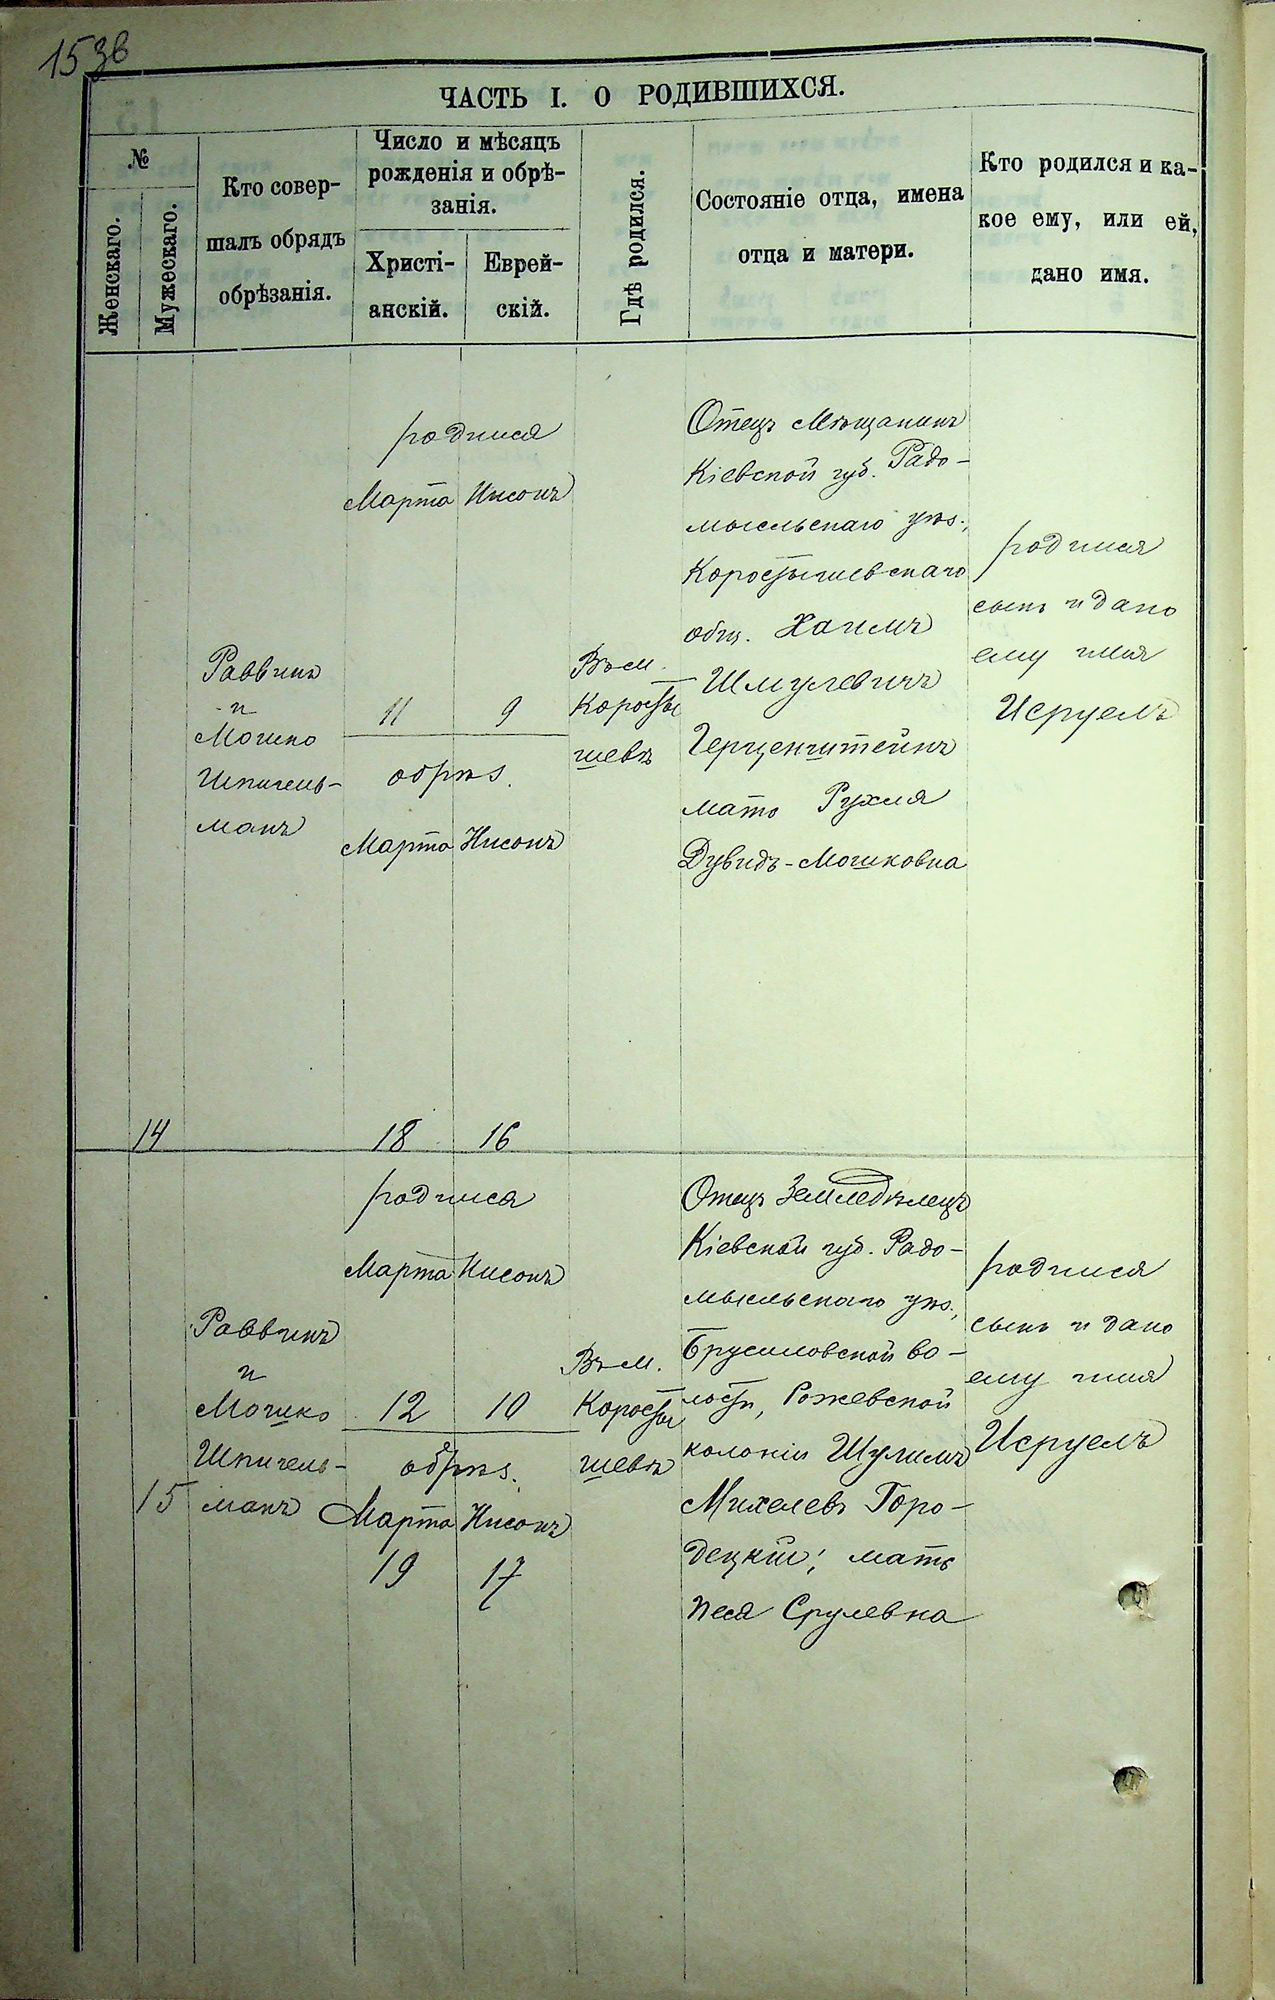 153в
ЧАСТЬ I. О РОДИВШИХСЯ.
№
Женскаго.
Мужескаго.
Кто совер-
шалъ обрядъ
обрѣзанія.
Число и мѣсяцъ
рожденія и обрѣ-
занія.
Христі-
анскій.
Еврей-
скій.
Гдѣ родился.
Состояніе отца, имена
отца и матери.
Кто родился и ка-
кое ему, или ей,
дано имя.
14
Раввинъ
и
Мошко
Шпигель-
манъ
родился
Марта Нисонъ
11 9
обрѣз.
Марта Нисонъ
18 16
Въ м.
Коросты
шевѣ
Отецъ Мѣщанинъ
Кіевской губ. Радо-
мысльскаго уѣз.,
Коростышевскаго
общ. Хаимъ
Шмулевичъ
Герценштейнъ
мать Рухля
Дувидъ-Мошковна
родился
сынъ и дано
ему имя
Исруелъ
15
Раввинъ
и
Мошко
Шпигель-
манъ
родился
Марта Нисонъ
12 10
обрѣз.
Марта Нисонъ
19 17
Въ м.
Коросты
шевѣ
Отецъ Земледѣлецъ
Кіевской губ. Радо-
мысльскаго уѣз.,
Брусиловской во-
лости, Рожевской
колоніи Шулимъ
Михелевъ Горо-
децкій; мать
Песя Срулевна
родился
сынъ и дано
ему имя
Исруелъ